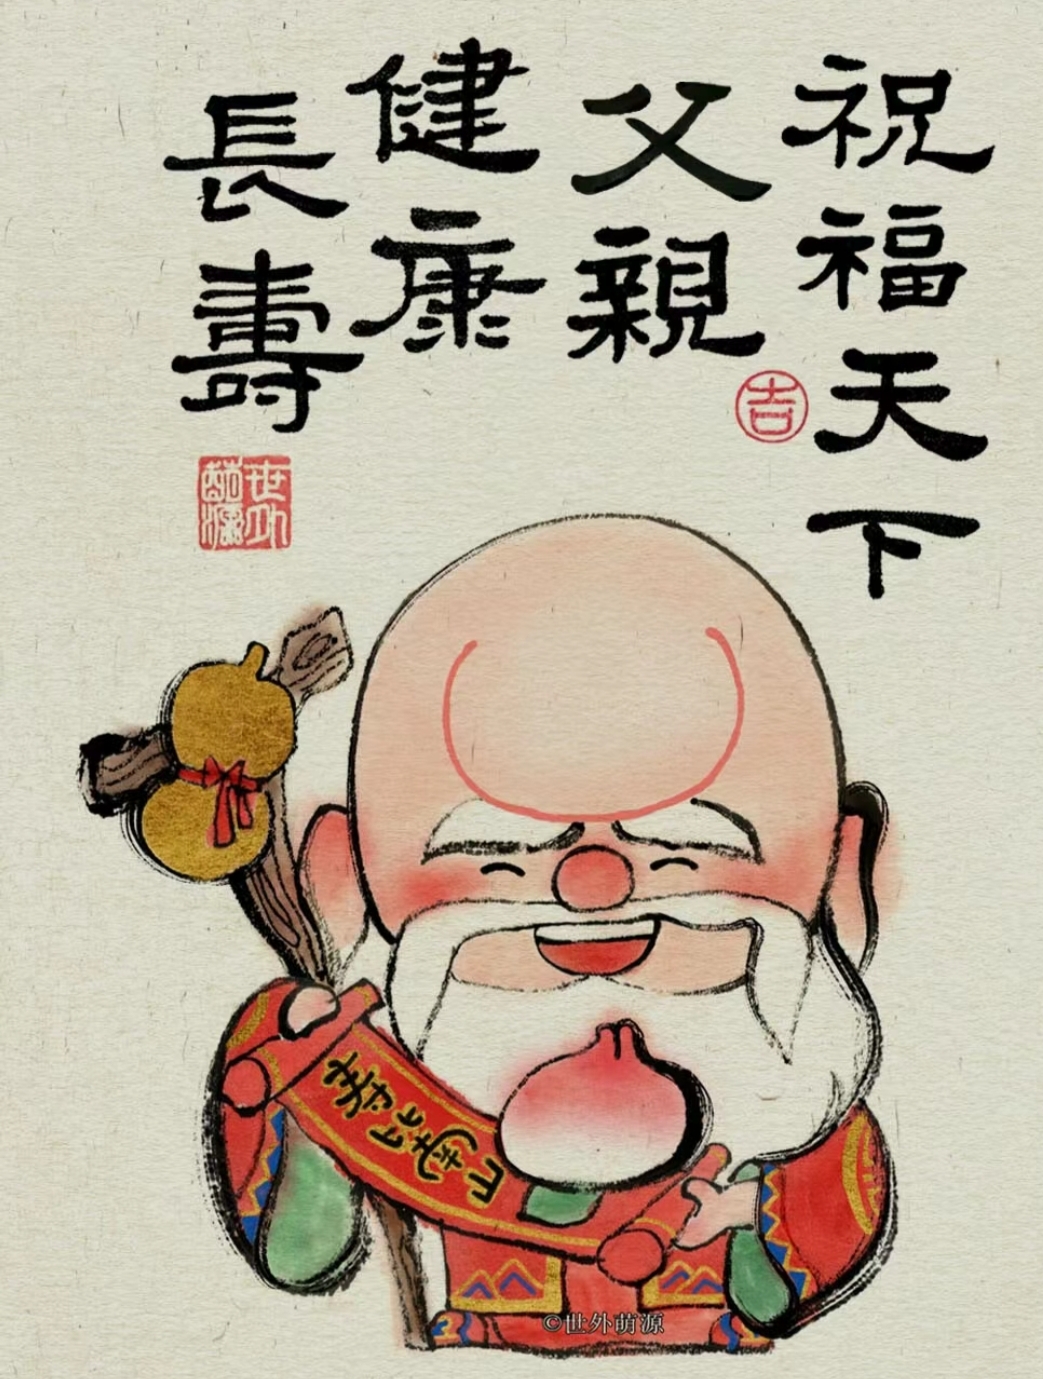 祝福天下
父親
健康
長壽
吉
世外萌源
寿比南山
©世外萌源